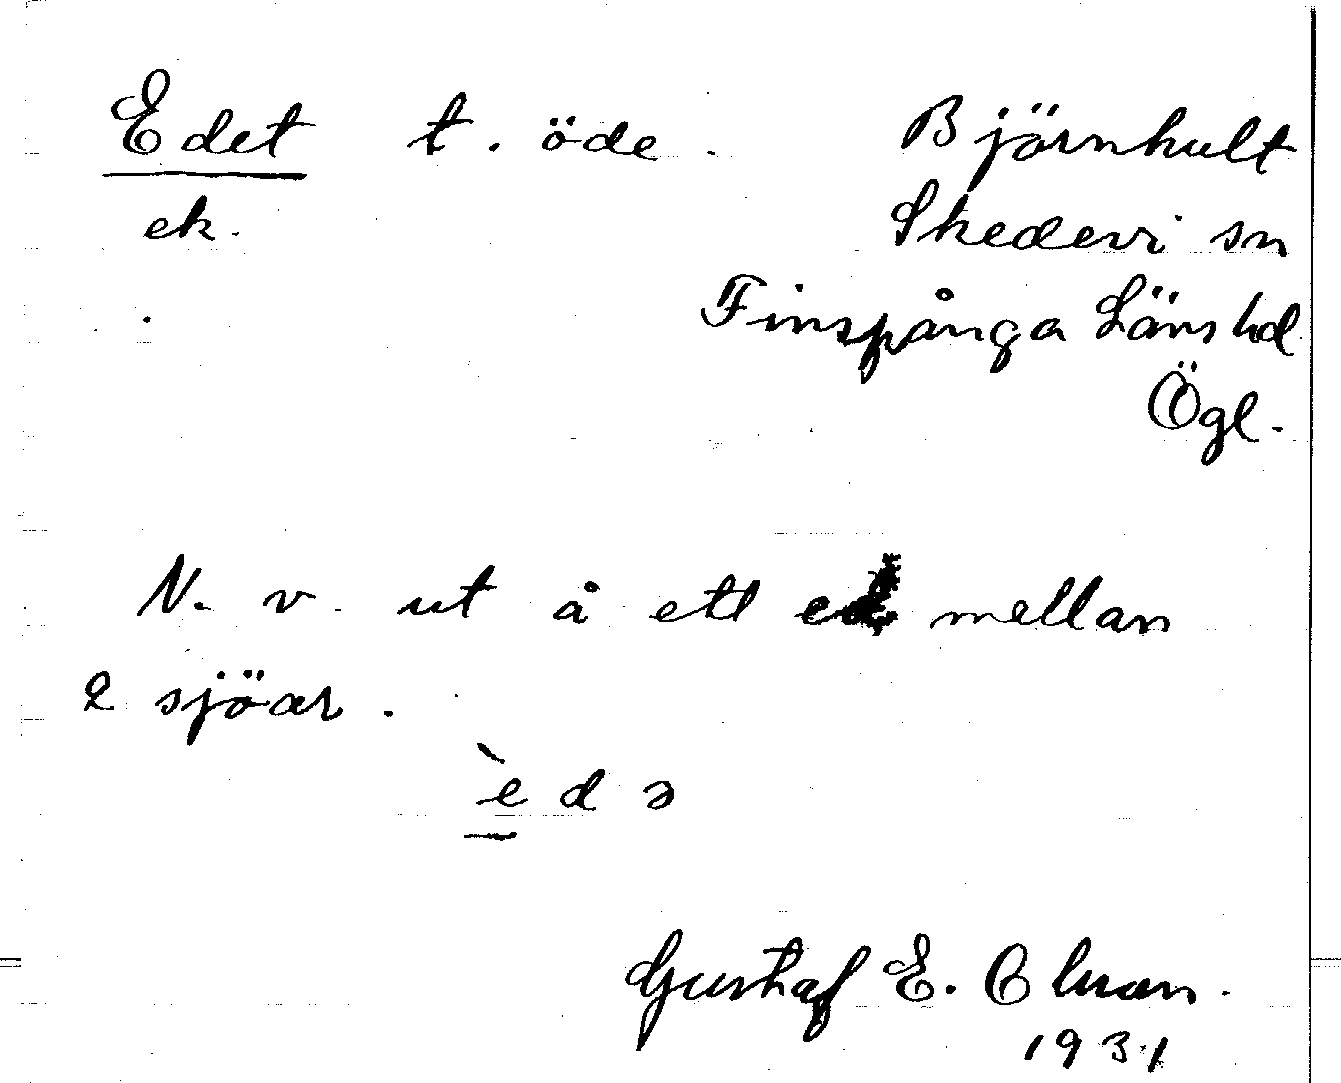 Edet t. öde. Björnhult
ek. Skedevi sn
Finspånga Läns hd
Ögl.
N. v. ut å ett ed mellan
2 sjöar.
`e d ə
Gustaf E. Olman.
1931